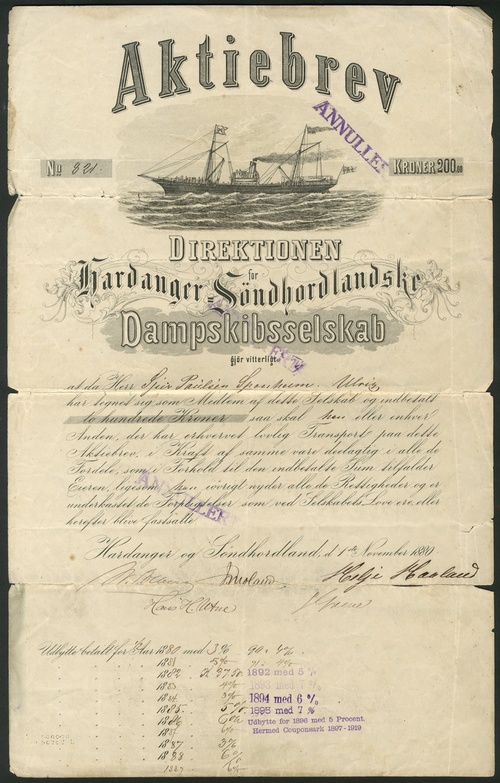 Aktiebrev
ANNULLERT
No 321.
KRONER 200,00
DIREKTIONEN
for
Hardanger-Söndhordlandske
Dampskibsselskab
gjör vitterligt
at da Herr
har tegnet sig som Medlem af dette Selskab og indbetalt
to hundrede Kroner saa skal han eller enhver
Anden, der har erhvervet lovlig Transport paa dette
Aktiebrev, i Kraft af samme være deelagtig i alle de
Fordele, som i Forhold til den indbetalte Sum tilfalder
Eieren, ligesom han iövrigt nyder alle de Rettigheder og er
underkastet de Forpligtelser som ved Selskabets Love ere, eller
herefter blive fastsatte
ANNULLERT
Hardanger og Söndhordland, d 1ste November 1880
Helje Haaland
Udbytte betalt for Aar 1880 med 3%
1881 5%
1882
1892 med 5 %
1883 4%
1893 med 7 %
1884 3%
1894 med 6 %
1885 5%
1895 med 7 %
1886 6%
Udbytte for 1896 med 5 Procent.
Hermed Couponsark 1897-1919
1887 3%
1888 6%